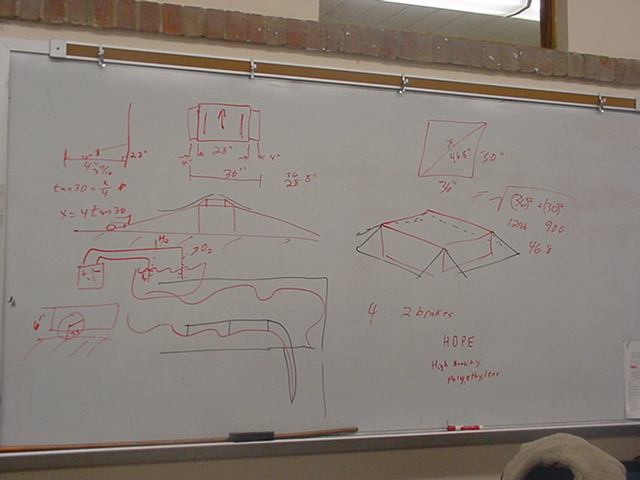 22"
tan30 = x/4
x = 4 tan30
28"
4"
36"
36
28 8"
H2
O2
6"
x
46.8"
30"
36"
√(36)² + (30)²
1296 900
46.8
4 2 brakes
HDPE
High Density
Polyethylene